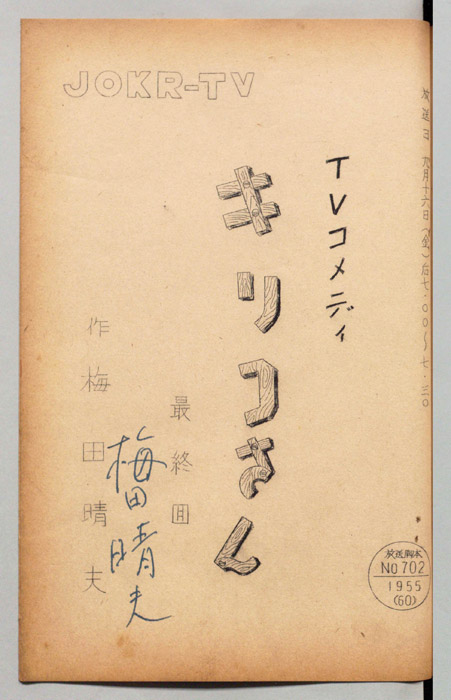 JOKR-TV
放送日 九月十六日(金)后七・〇〇〜七・三〇
TVコメディ
キリコさん
最終回
作 梅田晴夫
梅田晴夫
放送脚本
No 702
1955
(60)